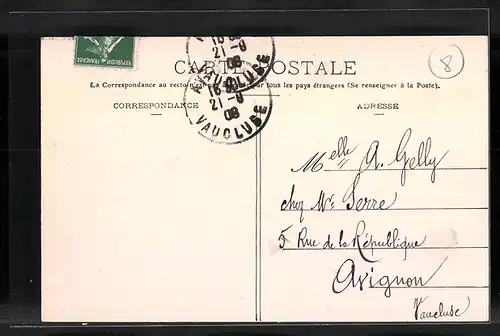 RÉPUBLIQUE FRANÇAISE
21 -8
08
VAUCLUSE
21 -8
08
VAUCLUSE
CARTE POSTALE
8
(La Correspondance au recto pour tous les pays étrangers (Se renseigner à la Poste).
CORRESPONDANCE
ADRESSE
Melle A. Gelly
chez Mr Serre
5 Rue de la République
Avignon
Vaucluse